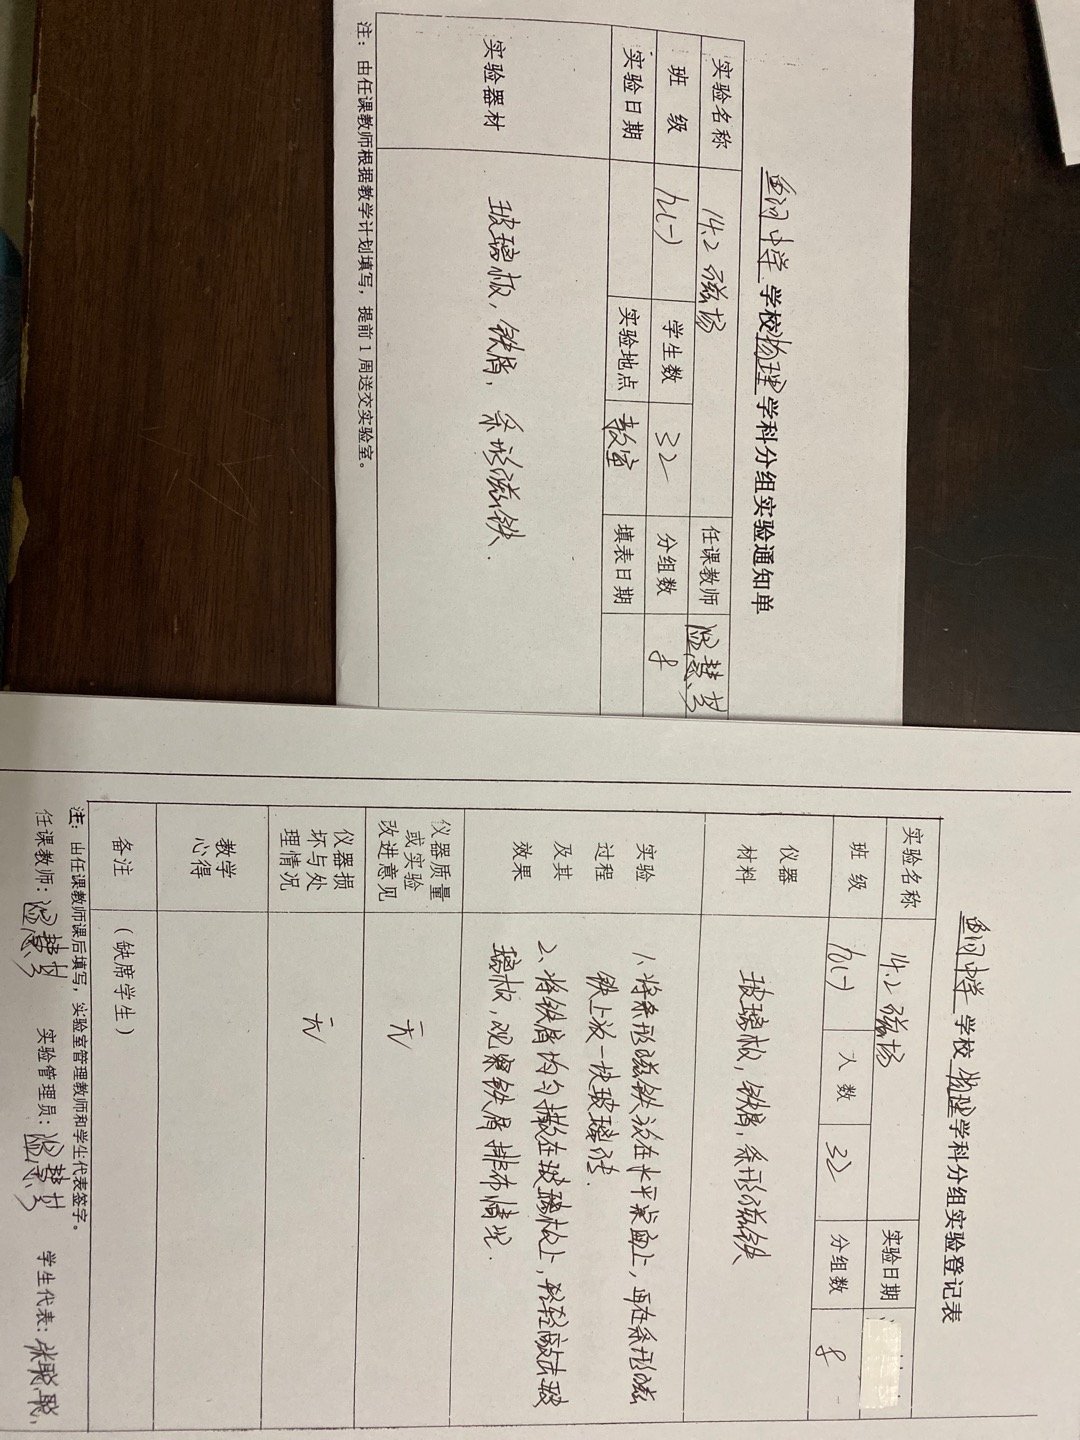 鱼河中学 学校物理学科分组实验通知单
实验名称 14.2 磁场 任课教师
班 级 九(一) 学生数 32 分组数 8
实验日期 实验地点 教室 填表日期
实验器材 玻璃板，铁屑，条形磁铁．
注：由任课教师根据教学计划填写，提前1周送交实验室。
鱼河中学 学校物理学科分组实验登记表
实验名称 14.2 磁场 实验日期
班 级 九(一) 人 数 32 分组数 8
仪器
材料
玻璃板，铁屑，条形磁铁
实验
过程
及其
效果
1、将条形磁铁放在水平桌面上，再在条形磁
铁上放一块玻璃
2、将铁屑均匀撒在玻璃板上，轻轻敲击玻
璃板，观察铁屑排布情况．
仪器质量
或实验
改进意见
无
仪器损
坏与处
理情况
无
教学
心得
备注 （缺席学生）
注：由任课教师课后填写，实验室管理教师和学生代表签字。
任课教师： 实验管理员： 学生代表：